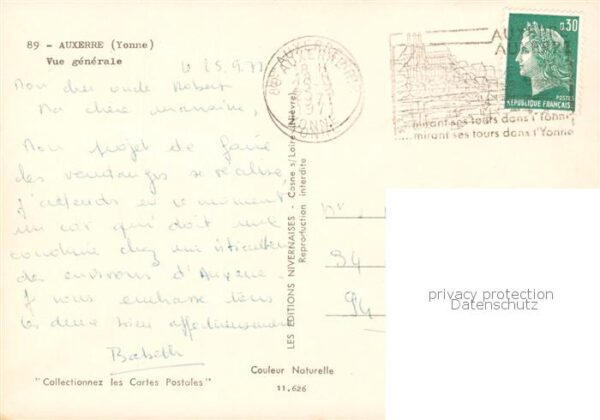 89 - AUXERRE (Yonne)
Vue générale
25.9.71
Mon cher oncle Robert
Ma chère marraine,
Mon projet de faire
des vendanges se réalise
j'attends en ce moment
un car qui doit me
conduire chez un viticulteur
des environs d'Auxerre.
Je vous embrasse tous
les deux bien affectueusement
Babeth
"Collectionnez les Cartes Postales"
LES EDITIONS NIVERNAISES - Cosne s/Loire (Nièvre)
Reproduction interdite
Couleur Naturelle
11.626
AUXERRE
YONNE
AUXERRE
...mirant ses tours dans l'Yonne
...mirant ses tours dans l'Yonne
0,30
POSTES
REPUBLIQUE FRANÇAISE
94
94
privacy protection
Datenschutz